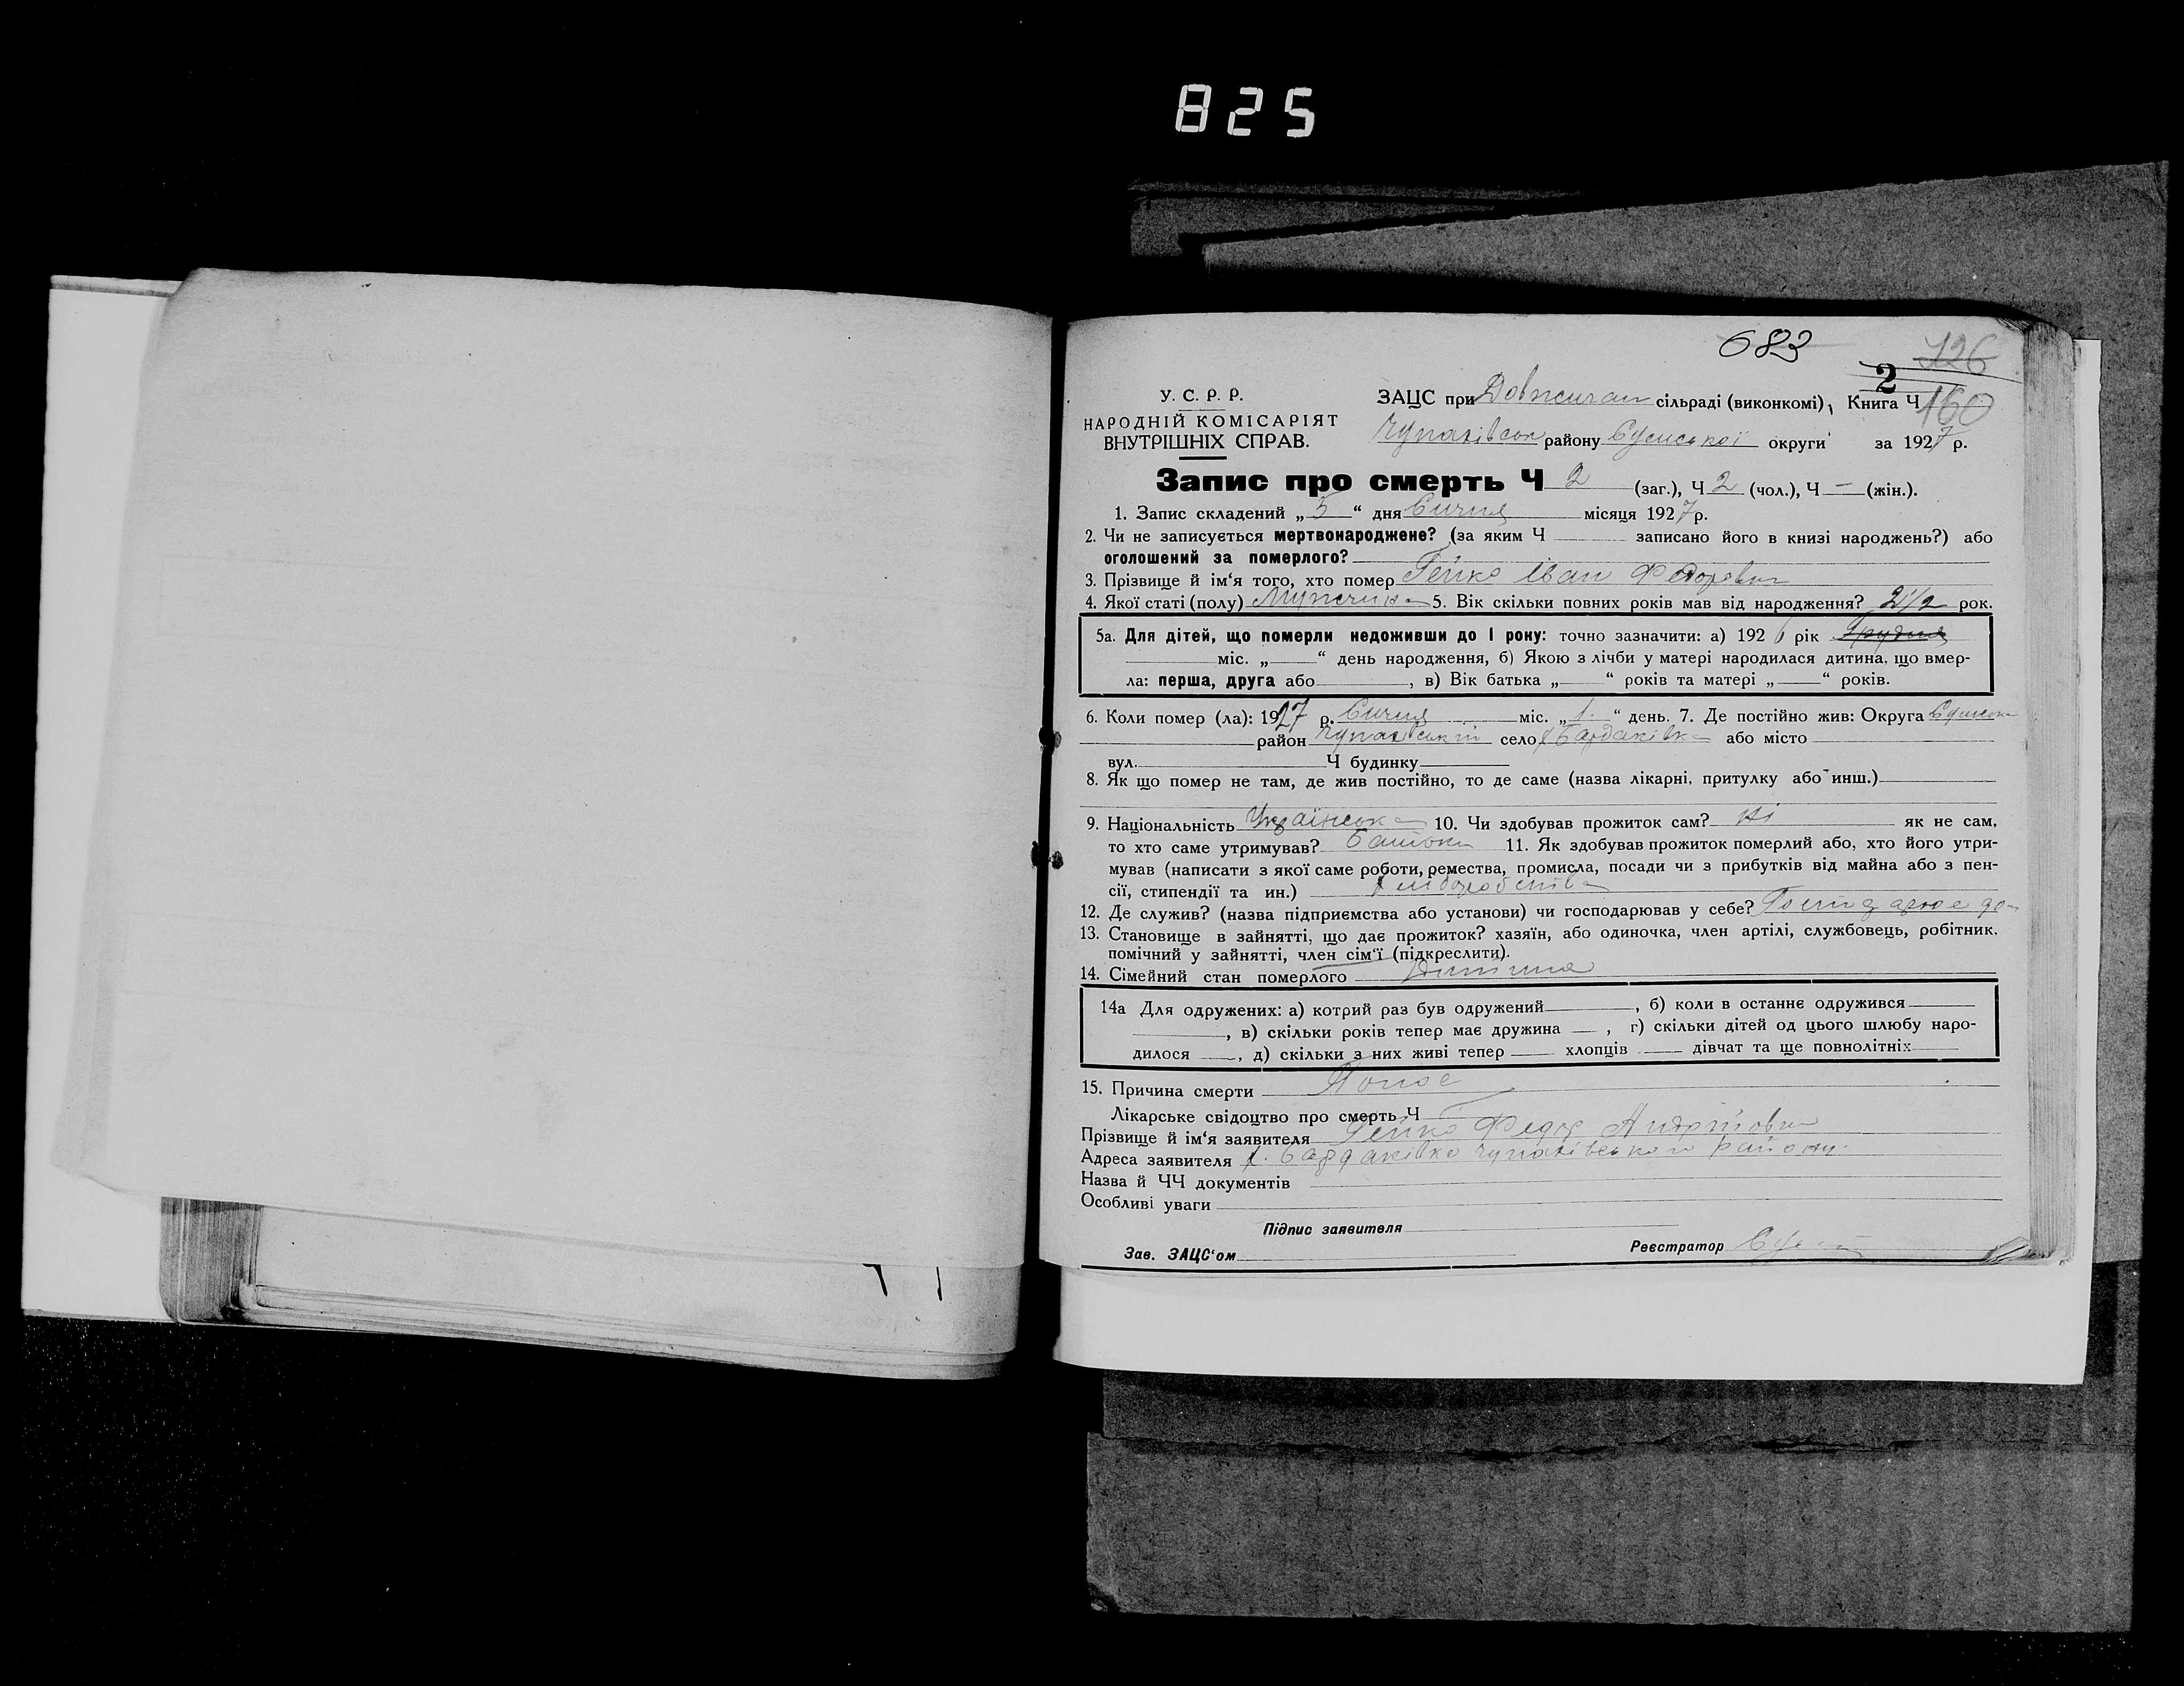 825
683
126
2
160
У. С. Р. Р.
НАРОДНІЙ КОМІСАРІЯТ
ВНУТРІШНІХ СПРАВ.
ЗАЦС при Довжичан сільраді (виконкомі), Книга Ч
Чупахівськ району Сумської округи за 1927 р.
Запис про смерть Ч 2 (заг.), Ч 2 (чол.), Ч — (жін.).
1. Запис складений „ 5 “ дня Січня місяця 1927 р.
2. Чи не записується мертвонароджене? (за яким Ч записано його в книзі народжень?) або
оголошений за померлого?
3. Прізвище й ім‘я того, хто помер Гейко Іван Федорович
4. Якої статі (полу) Мужчина 5. Вік скільки повних років мав від народження? 2 1/2 рок.
5а. Для дітей, що померли недоживши до 1 року: точно зазначити: а) 192 рік Грудня
міс. „ “ день народження, б) Якою з лічби у матері народилася дитина, що вмер-
ла: перша, друга або , в) Вік батька „ “ років та матері „ “ років.
6. Коли помер (ла): 1927 р. Січня міс. „ 1. “ день. 7. Де постійно жив: Округа Сумськ
район Чупахівський село Бардаківка або місто
вул. Ч будинку
8. Як що помер не там, де жив постійно, то де саме (назва лікарні, притулку або инш.)
9. Національність Українська 10. Чи здобував прожиток сам? Ні як не сам,
то хто саме утримував? Батьки 11. Як здобував прожиток померлий або, хто його утри-
мував (написати з якої саме роботи, ремества, промисла, посади чи з прибутків від майна або з пен-
сії, стипендії та ин.) Хліборобства
12. Де служив? (назва підприємства або установи) чи господарював у себе? Господарює до-
13. Становище в зайнятті, що дає прожиток? хазяїн, або одиночка, член артілі, службовець, робітник.
помічний у зайнятті, член сім‘ї (підкреслити).
14. Сімейний стан померлого Дитина
14а Для одружених: а) котрий раз був одружений , б) коли в останнє одружився
, в) скільки років тепер має дружина , г) скільки дітей од цього шлюбу наро-
дилося , д) скільки з них живі тепер хлопців дівчат та ще повнолітніх
15. Причина смерти Понос
Лікарське свідоцтво про смерть Ч
Прізвище й ім‘я заявителя Гейко Федор Андрійович
Адреса заявителя х. Бардаківка Чупахівського району
Назва й ЧЧ документів
Особливі уваги
Підпис заявителя
Зав. ЗАЦС‘ом Реєстратор